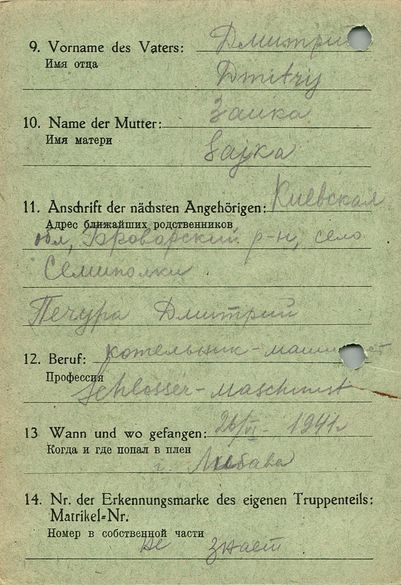 9. Vorname des Vaters: Дмитрий
Имя отца
Dmitry
10. Name der Mutter: Заика
Имя матери
Sajka
11. Anschrift der nächsten Angehörigen: Киевская
Адрес ближайших родственников
обл, Броварский р-н, село
Семиполки
Печура Дмитрий
12. Beruf: котельник-машинист
Профессия
Schlosser-Maschinist
13 Wann und wo gefangen: 26/VI - 1941г
Когда и где попал в плен
г. Либава
14. Nr. der Erkennungsmarke des eigenen Truppenteils:
Matrikel-Nr.
Номер в собственной части
не знает